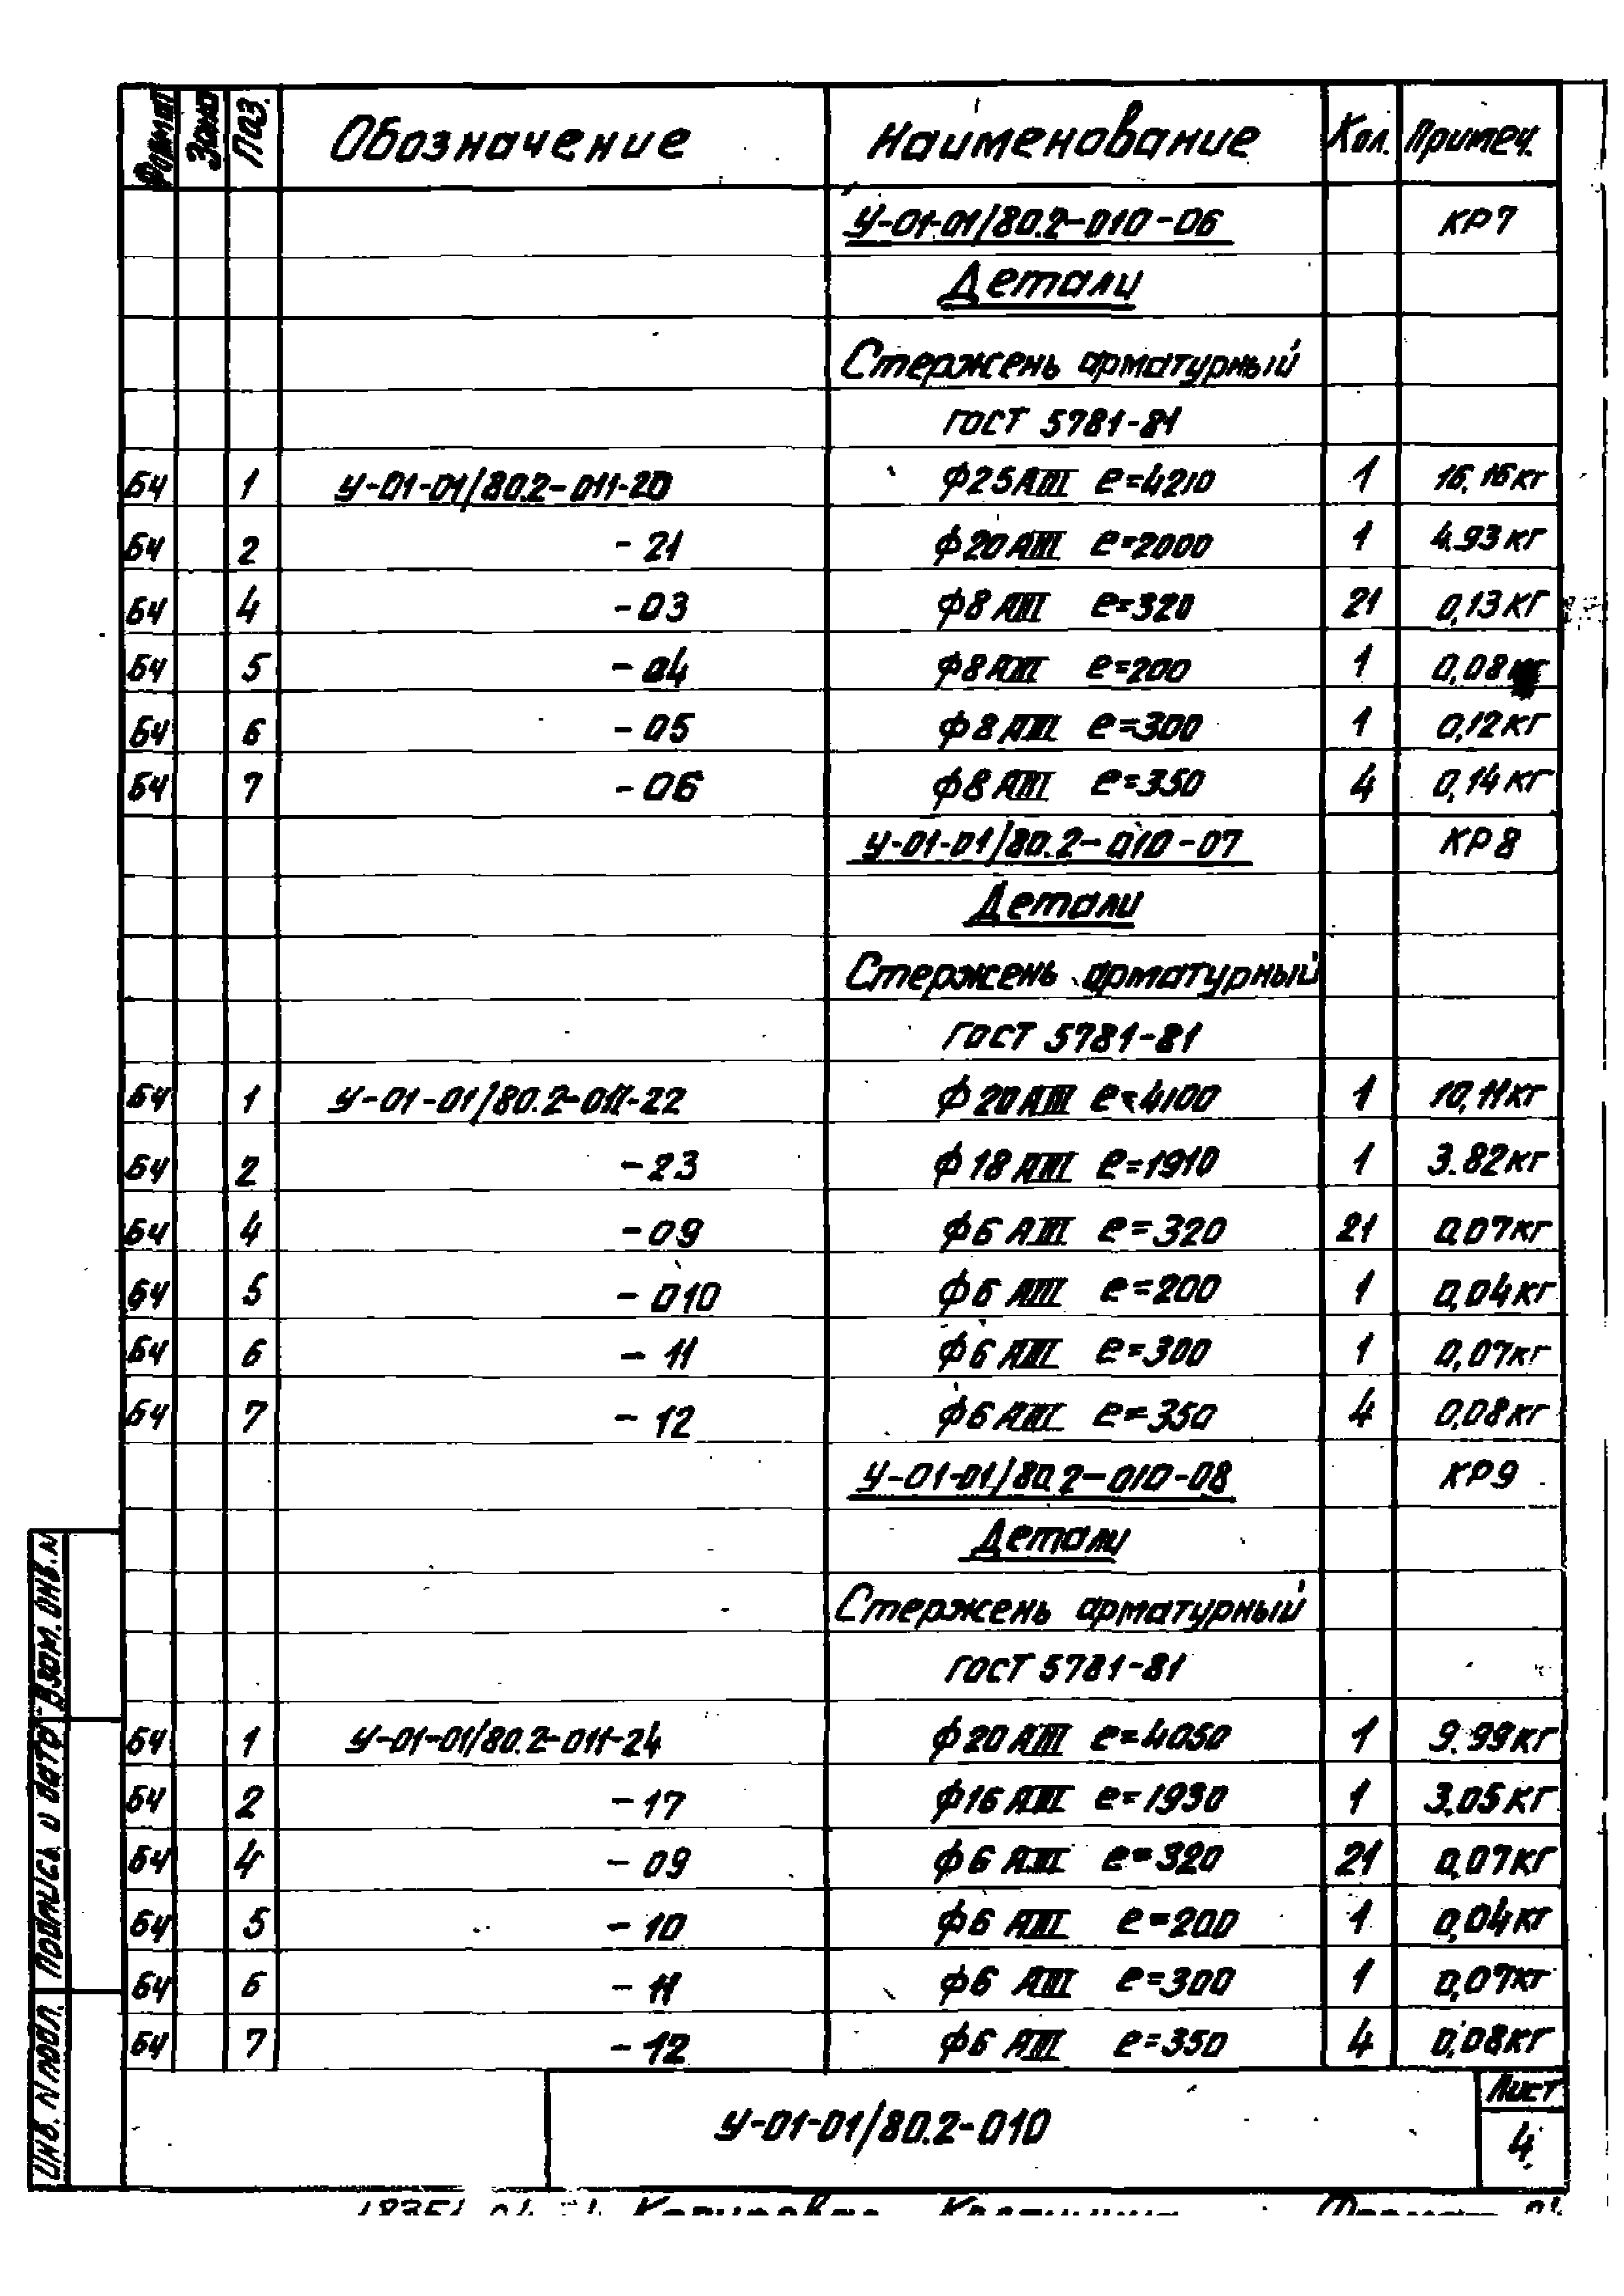 Формат Зона Поз. Обозначение Наименование Кол. Примеч.
У-01-01/80.2-010-06 КР7
Детали
Стержень арматурный
ГОСТ 5781-81
БЧ 1 У-01-01/80.2-011-20 Ф25АIII ℓ=4210 1 16,16кг
БЧ 2 -21 Ф20АIII ℓ=2000 1 4.93кг
БЧ 4 -03 Ф8АIII ℓ=320 21 0,13кг
БЧ 5 -04 Ф8АIII ℓ=200 1 0,08кг
БЧ 6 -05 Ф8АIII ℓ=300 1 0,12кг
БЧ 7 -06 Ф8АIII ℓ=350 4 0,14кг
У-01-01/80.2-010-07 КР8
Детали
Стержень арматурный
ГОСТ 5781-81
БЧ 1 У-01-01/80.2-011-22 Ф20АIII ℓ=4100 1 10,11кг
БЧ 2 -23 Ф18АIII ℓ=1910 1 3.82кг
БЧ 4 -09 Ф6АIII ℓ=320 21 0,07кг
БЧ 5 -010 Ф6АIII ℓ=200 1 0,04кг
БЧ 6 -11 Ф6АIII ℓ=300 1 0,07кг
БЧ 7 -12 Ф6АIII ℓ=350 4 0,08кг
У-01-01/80.2-010-08 КР9
Детали
Стержень арматурный
ГОСТ 5781-81
БЧ 1 У-01-01/80.2-011-24 Ф20АIII ℓ=4050 1 9.99кг
БЧ 2 -17 Ф16АIII ℓ=1930 1 3.05кг
БЧ 4 -09 Ф6АIII ℓ=320 21 0,07кг
БЧ 5 -10 Ф6АIII ℓ=200 1 0,04кг
БЧ 6 -11 Ф6АIII ℓ=300 1 0,07кг
БЧ 7 -12 Ф6АIII ℓ=350 4 0,08кг
У-01-01/80.2-010
Лист
4
Взам. инв. N
Подпись и дата
Инв. N подл.